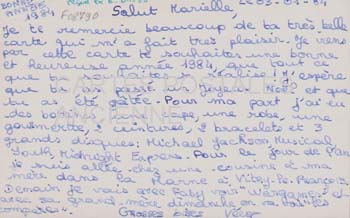 BONNE ANNÉE 1984
F02790
Le 03-01-84
Salut Marielle,
Je te remercie beaucoup de ta très belle
carte qui m'a fait très plaisir. Je viens
par cette carte te souhaiter une bonne
et heureuse année 1984, que tout ce
que tu se réalise! J'espère
que tu as passé un joyeux Noël et que
tu as été gâtée. Pour ma part j'ai eu
des une robe, une
gourmette, 2 ceintures, 2 bracelets et 3
grands disques: Michael Jackson, Musical
Youth, Midnight Express. Pour le jour de l'an
je suis allée chez une cousine à ma
mère dans la Marne à Vitry-le-François.
Demain je vais avec voir "Wargames" et
avec sa grand-mère dimanche en va voir "les
compères".
Grosses bises Véro